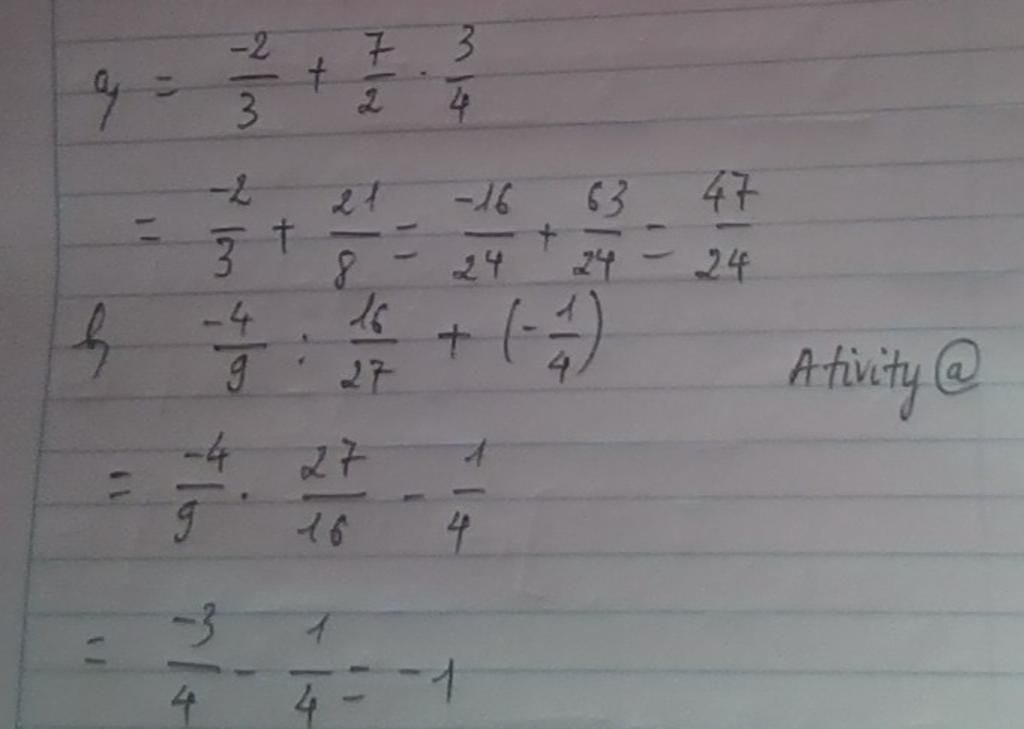 a) = -2/3 + 7/2 . 3/4
= -2/3 + 21/8 = -16/24 + 63/24 = 47/24
b) -4/9 : 16/27 + (-1/4)
Ativity @
= -4/9 . 27/16 - 1/4
= -3/4 - 1/4 = -1